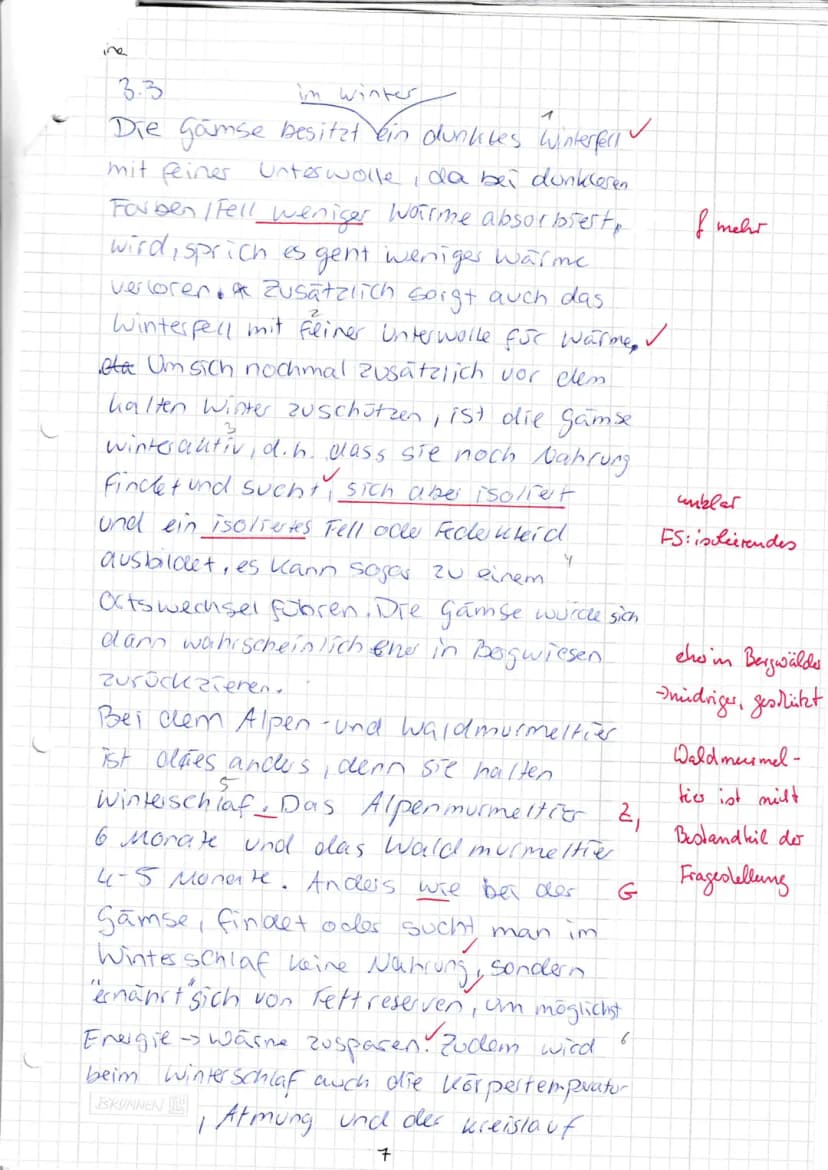 ine
3.3 im Winter
Die Gämse besitzt ein dunkles Winterfell 1
mit feiner Unterwolle, da bei dunkleren
Farben/Fell weniger Wärme absorbiert, f mehr
wird, sprich es geht weniger Wärme
verloren. Zusätzlich sorgt auch das
Winterfell mit feiner Unterwolle für Wärme, 2
Um sich nochmal zusätzlich vor dem
kalten Winter zuschützen, ist die Gämse
winteraktiv, d.h. dass sie noch Nahrung 3
findet und sucht, sich aber isoliert unklar
und ein isoliertes Fell oder Federkleid FS: isolierendes
ausbildet, es kann sogar zu einem 4
Ortswechsel führen. Die Gämse würde sich
dann wahrscheinlich eher in Bergwiesen eher in Bergwälder
zurückzieren. → niedriger, geschützt
Bei dem Alpen- und Waldmurmeltier
ist dies anders, denn sie halten Waldmurmel-
Winterschlaf. Das Alpenmurmeltier 5 Z, tier ist nicht
6 Monate und das Waldmurmeltier Bestandteil der
4-5 Monate. Anders wie bei der G Fragestellung
Gämse, findet oder sucht man im
Winterschlaf keine Nahrung, sondern
"ernährt" sich von Fettreserven, um möglichst
Energie → Wärme zusparen. Zudem wird 6
beim Winterschlaf auch die Körpertemperatur
BRUNNEN
, Atmung und der Kreislauf
7